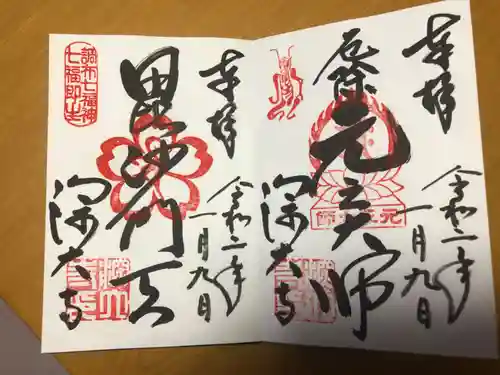 奉拝
令和二年
一月九日
厄除
元三大師
元三大師
深大寺
奉拝
令和二年
一月九日
毘沙門天
調布七福神
七福即生
深大寺